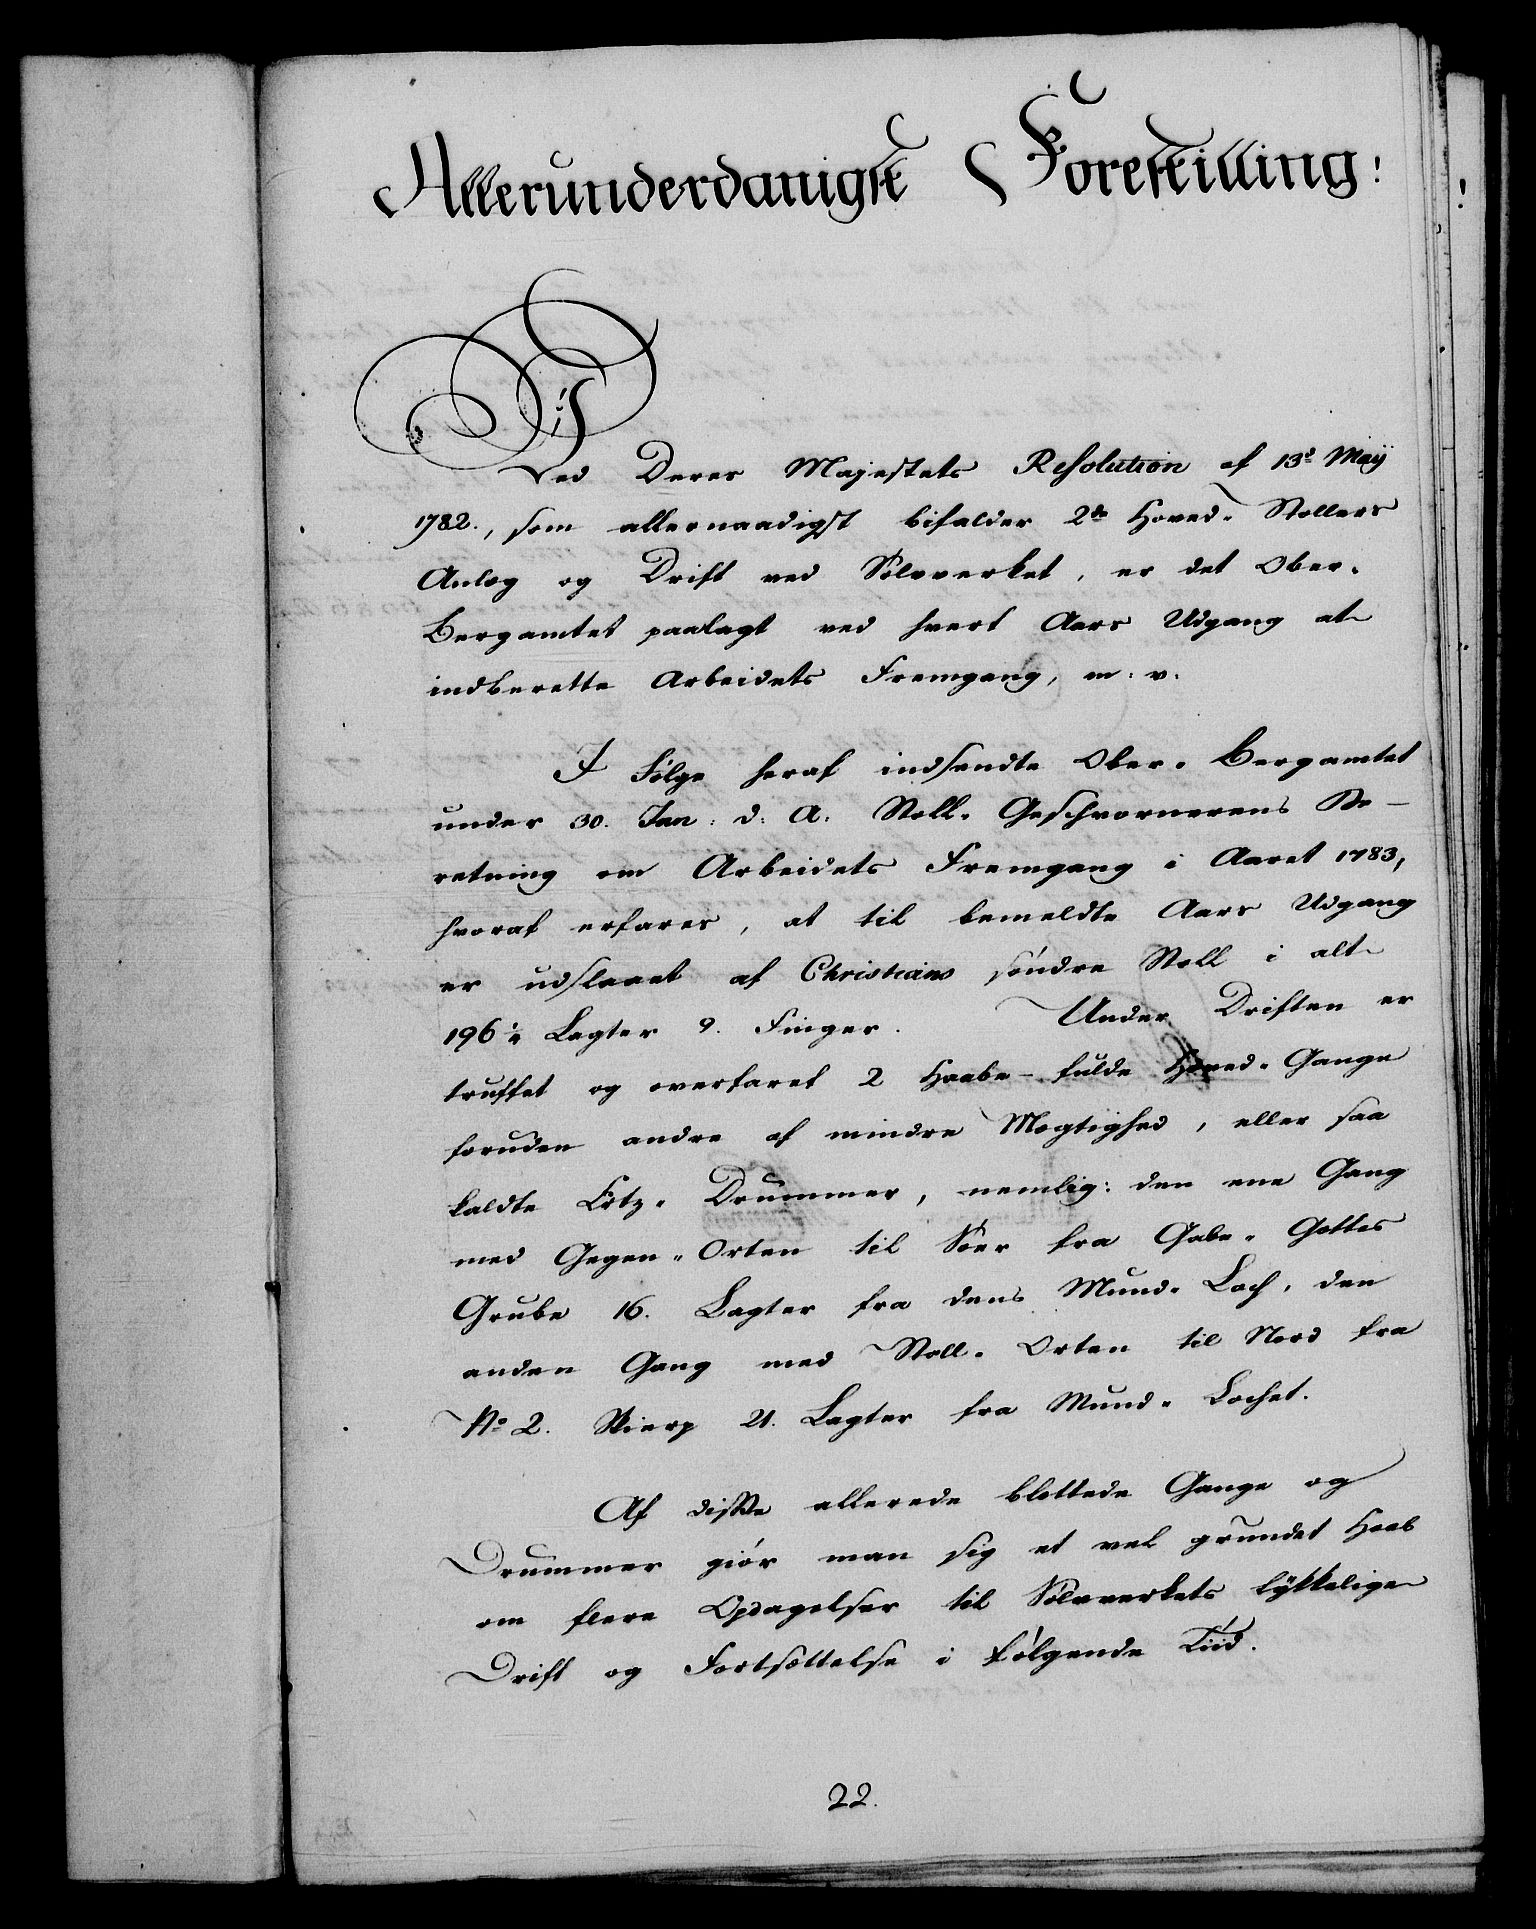 Allerunderdanigst Forestilling!
Ved Deres Majestets Resolution af 13de Maÿ
1782., som allernaadigst bifalder 2de Hoved-Stollers
Anlæg og Drift ved Sølvverket, er det Ober-
Bergamtet paalagt ved hvert Aars Udgang at
indberette Arbeidets Fremgang, m: v.
I Følge heraf indsendte Ober-Bergamtet
under 30. Jan: d: A. Stoll-Geschwornerens Be-
retning om Arbeidets Fremgang i Aaret 1783,
hvoraf erfares, at til bemeldte Aars Udgang
er udslaaet af Christians søndre Stoll i alt
196½ Lagter 9. Finger. Under Driften er
truffet og overfaret 2 Haabe-fulde Hoved-Gange
foruden andre af mindre Mægtighed, eller saa
kaldte Ertz-Drummer, nemlig: den ene Gang
med Gegen-Orten til Søer fra Gabe-Gottes
Grube 16. Lagter fra dens Mund-Loch, den
anden Gang med Stoll-Orten til Nord fra
No 2. Skierp 21. Lagter fra Mund-Lochet.
Af disse allerede blottede Gange og
Drummer giør man sig et vel grundet Haab
om flere Opdagelser til Sølvverkets lÿkkelige
Drift og Fortsættelse i følgende Tiid.
22.